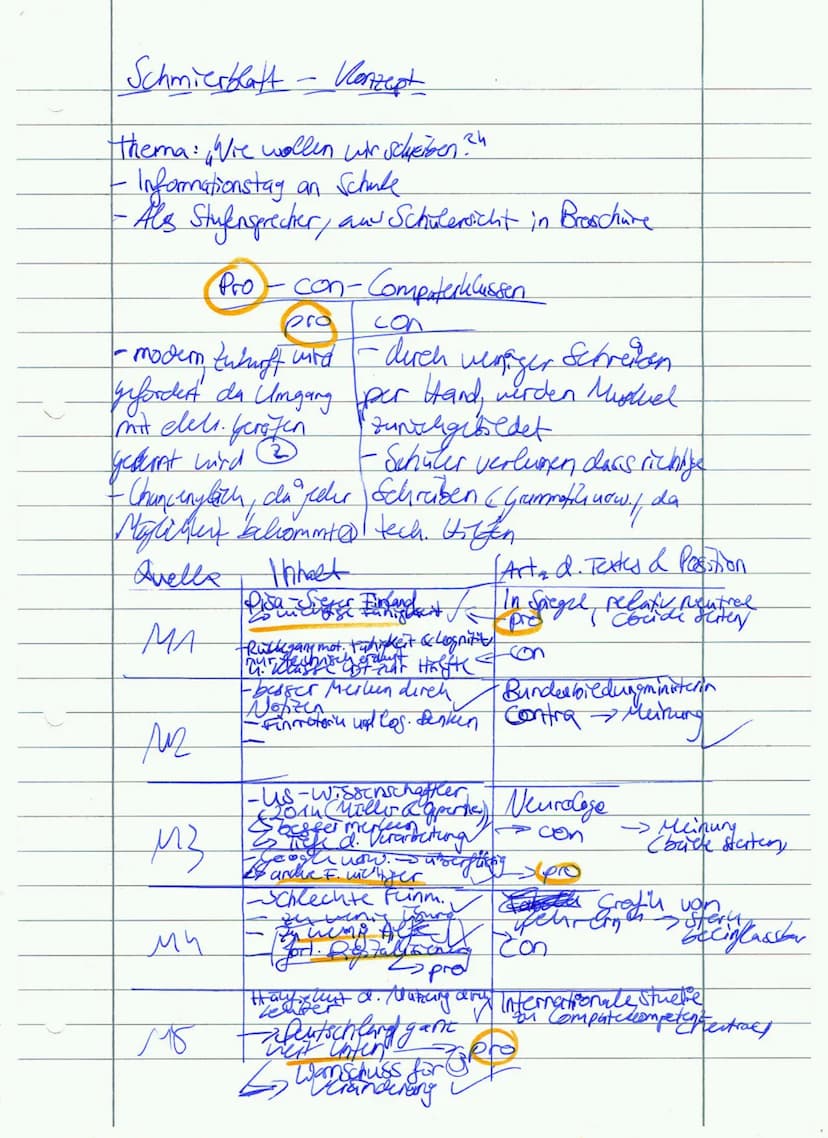 Schmierblatt – Konzept
Thema: „Wie wollen wir schreiben?"
- Informationstag an Schule
- Als Stufensprecher, aus Schülersicht in Broschüre
Pro – con – Computerklassen
pro con
- modern, Zukunft wird
gefördert da Umgang
mit elek. Geräten
gelernt wird ②
- Chancengleich, da jeder
Möglichkeit bekommt ①
- durch weniger Schreiben
per Hand, werden Muskel
zurückgebildet
- Schüler verlernen dass richtige
Schreiben (Grammatik usw.), da
tech. Hilfen
Quelle Inhalt Art d. Textes & Position
M1
Pisa-Sieger Finland
Rückgang mot. Fähigkeit & kognitiv
4. Klasse ist nur Hälfte
In Spiegel, relativ neutral
pro (beide Seiten)
con
M2
- besser Merken durch
Notizen
- Feinmotorik und log. denken
-
Bundesbildungsministerin
Contra → Meinung
M3
- US-Wissenschaftler
2014 (Müller & Oppenheimer)
↳ besser merken
↳ Tiefe d. Verarbeitung
- Google usw. → überflüssig
↳ andre F. wichtiger
Neurologe
→ con → Meinung
(beide Seiten)
→ pro
M4
- Schlechte Feinm.
- zu wenig Übung
- zu wenig
- fort. Digitalisierung
↳ pro
Grafik von
Lehrern → stark
beeinflussbar
con
M5
Häufigkeit d. Nutzung durch
Lehrer
→ Deutschland ganz
weit unten → pro
↳ Warnschuss für
Veränderung
Internationale Studie
zu Computerkompetenz
(neutral)